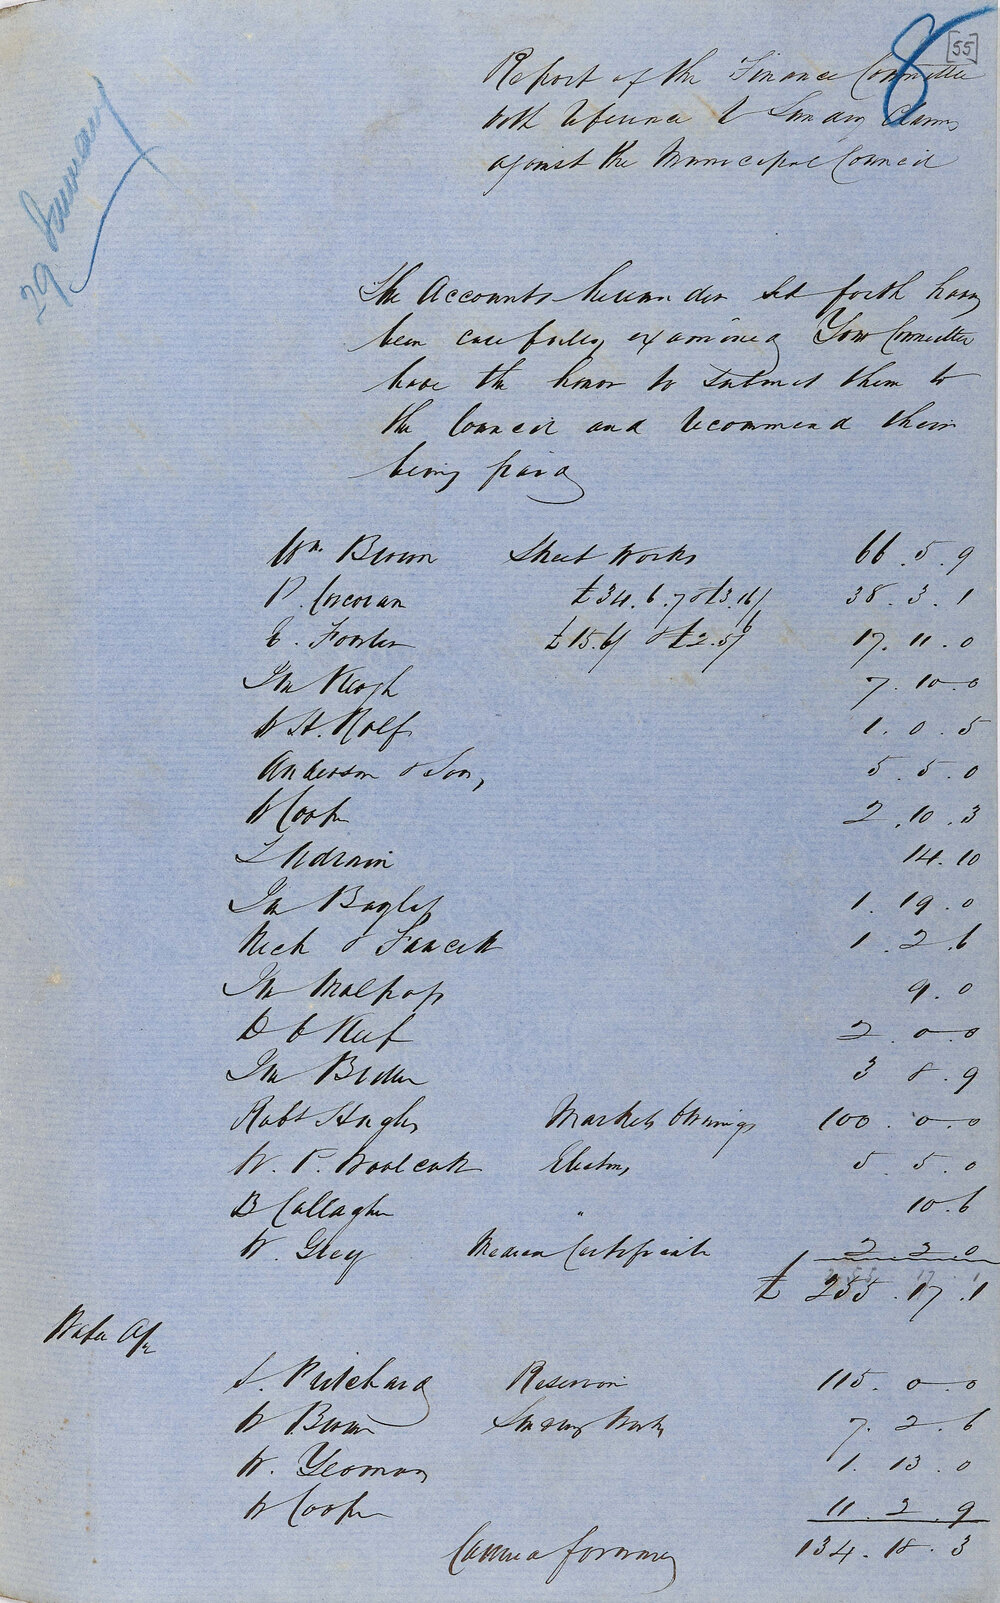 8
[55]
29 January
Report of the Finance Committee
with reference to Sundry Claims
against the Municipal Council
The Accounts hereunder set forth having
been carefully examined Your Committee
have the honor to submit them to
the Council and recommend their
being paid
Wm. Brown Street Works 66 . 5 . 9
P. Corcoran £34 . 6 . 7 & £3.16/6 38 . 3 . 1
E. Fowler £15.6/ & £2.5/ 17 . 11 . 0
Jn Keogh 7 . 10 . 0
W H. Rolf 1 . 0 . 5
Anderson & Son, 5 . 5 . 0
W Cooper 2 . 10 . 3
14 . 10
Jn Bagley 1 . 19 . 0
& Fawcett 1 . 2 . 6
Jn Malpas 9 . 0
D O Keef 2 . 0 . 0
Jn 3 . 8 . 9
Robt Hughes Markets Awnings 100 . 0 . 0
W. P. Woolcott Elections 5 . 5 . 0
B Callaghan " 10 . 6
W. Grey Median Certificate 2 2 0
£ 255 . 17 . 1
Water A/c
S. Pritchard Reservoir 115 . 0 . 0
W Brown Sundry Works 7 . 2 . 6
W. Yeoman 1 . 13 . 0
W Cooper 11 . 2 . 9
Carried forward 134 . 18 . 3